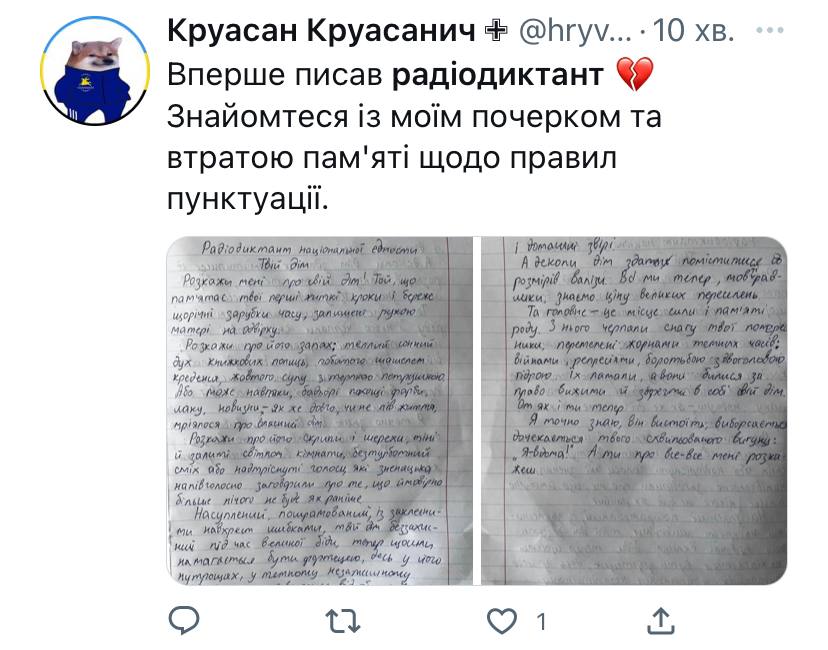 Круасан Круасанич @hryv... · 10 хв.
Вперше писав радіодиктант 💔
Знайомтеся із моїм почерком та
втратою пам'яті щодо правил
пунктуації.
Радіодиктант національної єдности
Твій дім
Розкажи мені про свій дім! Той, що
пам'ятає твої перші хиткі кроки і береже
щорічні зарубки часу, залишені рукою
матері на одвірку.
Розкажи про його запах: теплий сонний
дух книжкових полиць, побитого шашелем
креденса, жовтого супу з терпкою петрушкою.
Або може навпаки, бадьорі пахощі фарби,
лаку, новизни – як же довго, чи не пів життя,
мріялося про власний дім.
Розкажи про його скрипи і шерехи, тіні
й залиті світлом кімнати, безтурботний
сміх або надтріснуті голоси, які зненацька
напівголосно заговорили про те, що ймовірно
більше нічого не буде як раніше.
Насуплений, пошрамований, із заклеєни-
ми навхрест шибками, твій дім беззахис-
ний під час великої біди, тепер щосили
намагається бути фортецею, десь у його
нутрощах, у темному незатишному
і домашні звірі.
А деколи дім здатен поміститися до
розмірів валізи. Бо ми тепер, мов рав-
лики, знаємо ціну великих переселень.
Та головне – це місце сили і пам'яті
роду. З нього черпали снагу твої попере
ники, перемелені жорнами темних часів:
війнами, репресіями, боротьбою з двоголовою
гідрою. Їх ламали, а вони билися за
право вижити й зберегти в собі свій дім.
От як і ти тепер.
Я точно знаю, він вистоїть, виборсається
дочекається твого схвильованого вигуку:
„Я-вдома!" А ти про все-все мені розка-
жеш.
1